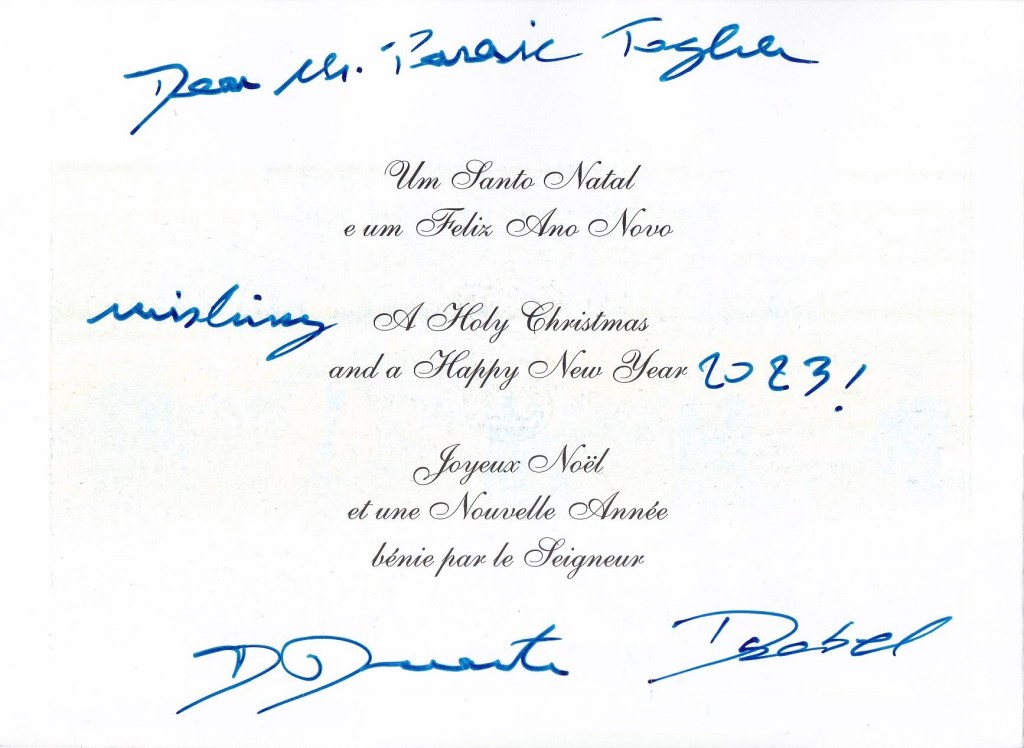 Dear Mr. Parasic Tagher
Um Santo Natal
e um Feliz Ano Novo
wishing A Holy Christmas
and a Happy New Year 2023!
Joyeux Noël
et une Nouvelle Année
bénie par le Seigneur
D Duarte Isabel